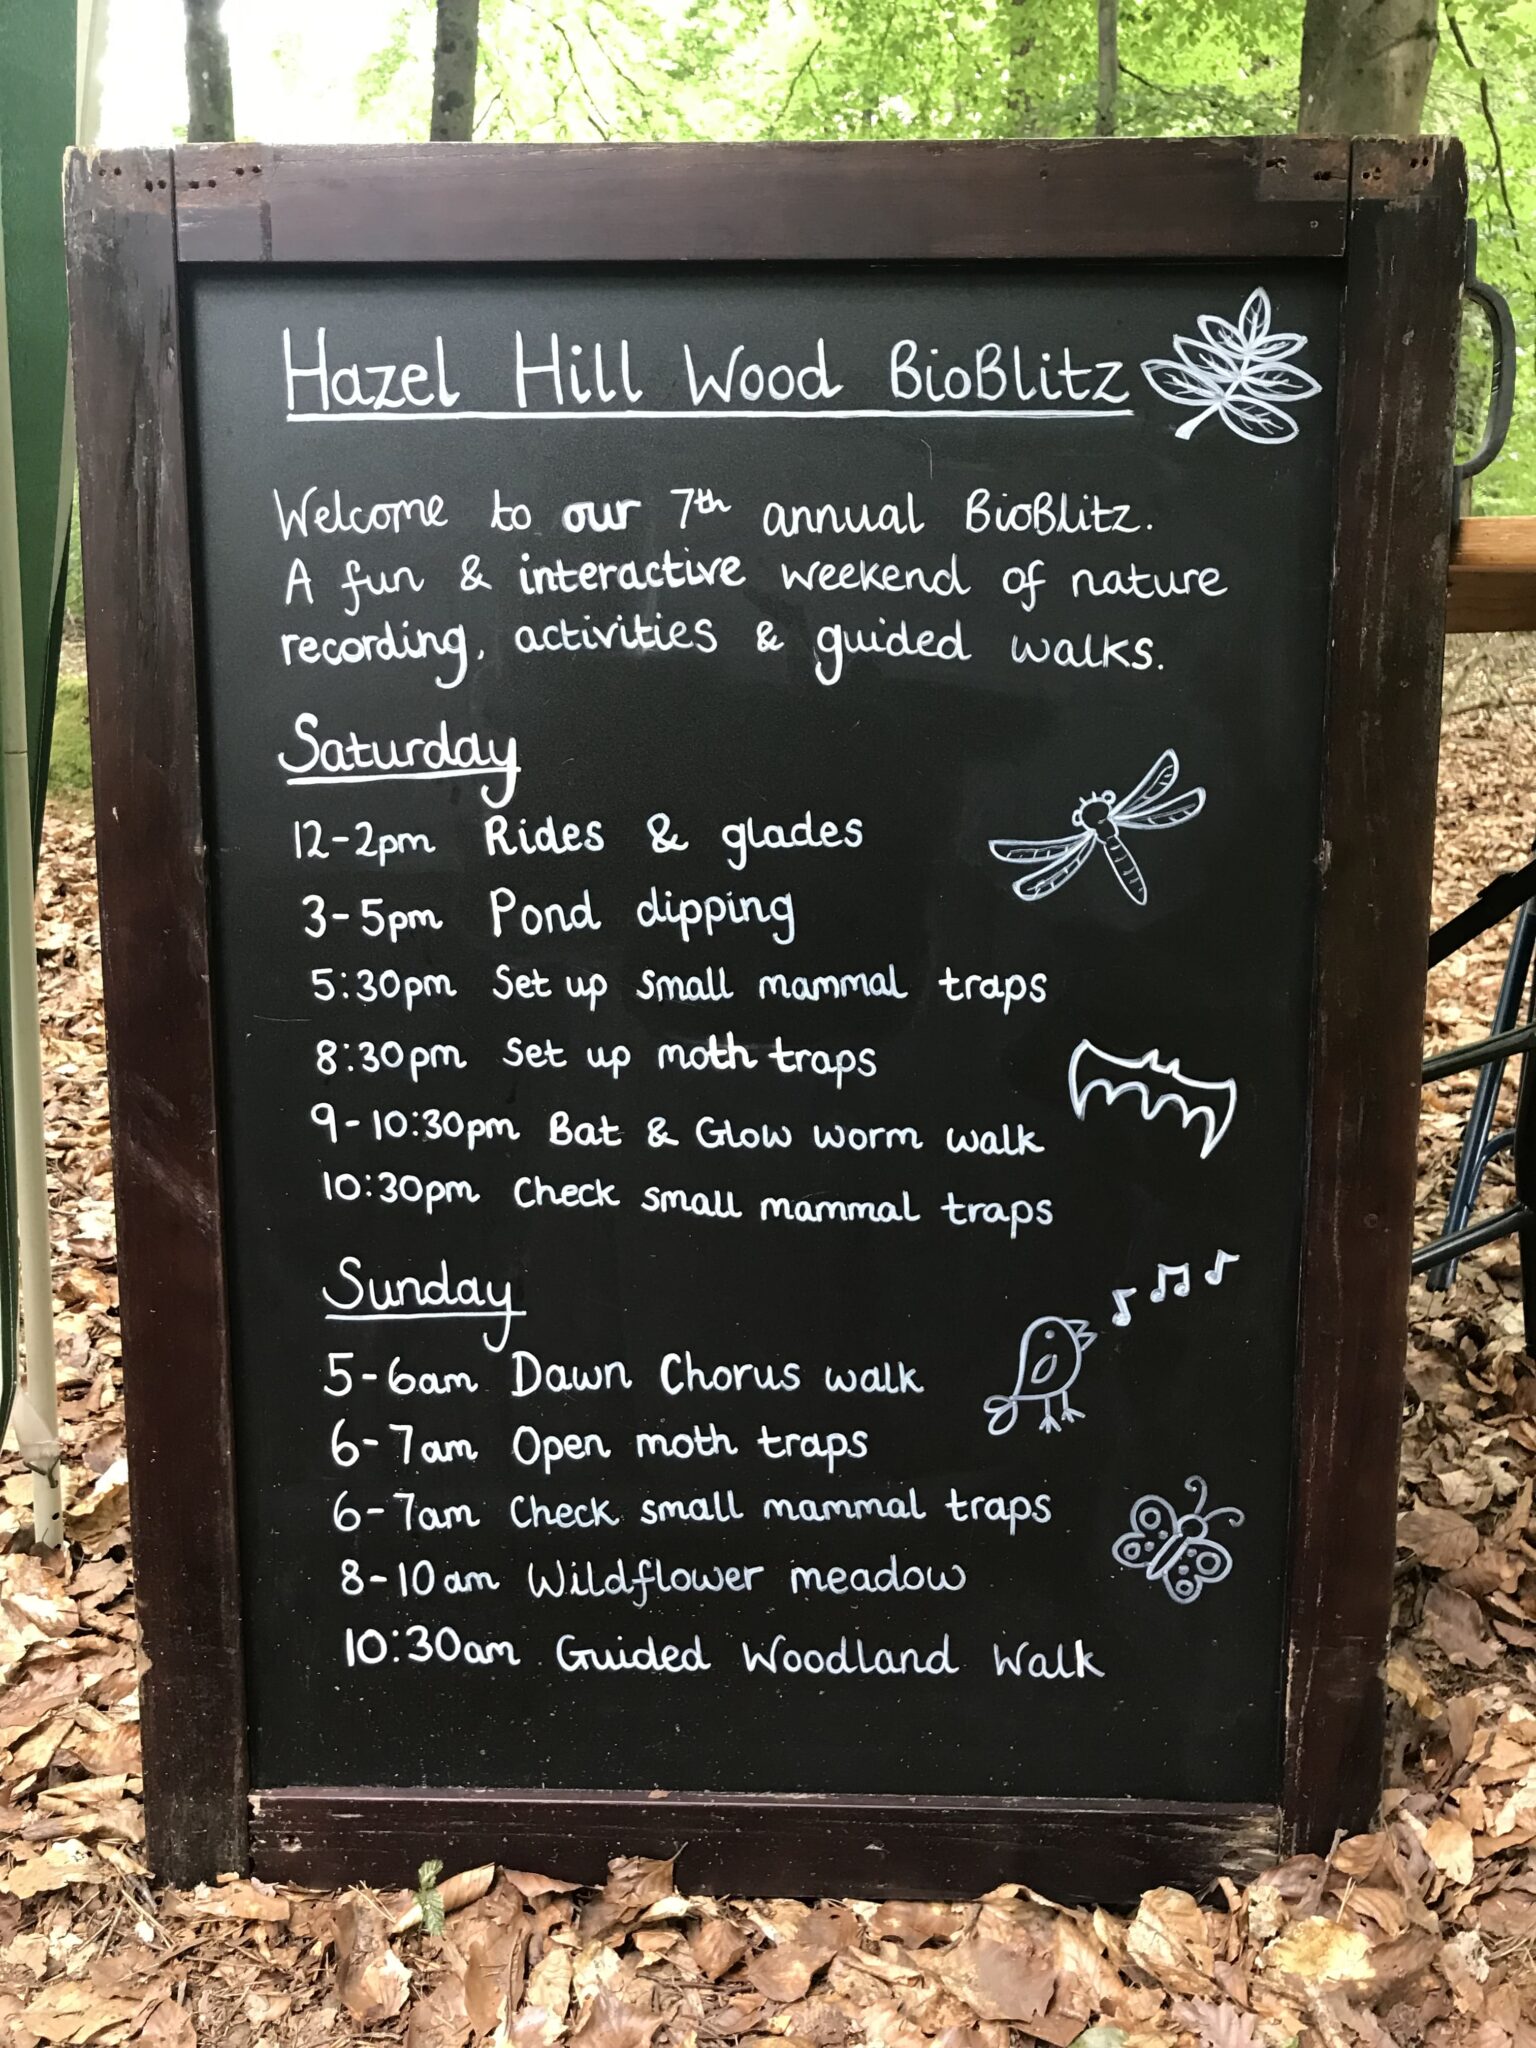 Hazel Hill Wood BioBlitz
Welcome to our 7th annual BioBlitz.
A fun & interactive weekend of nature
recording, activities & guided walks.
Saturday
12-2pm Rides & glades
3-5pm Pond dipping
5:30pm Set up small mammal traps
8:30pm Set up moth traps
9-10:30pm Bat & Glow worm walk
10:30pm Check small mammal traps
Sunday
5-6am Dawn Chorus walk
6-7am Open moth traps
6-7am Check small mammal traps
8-10am Wildflower meadow
10:30am Guided Woodland Walk